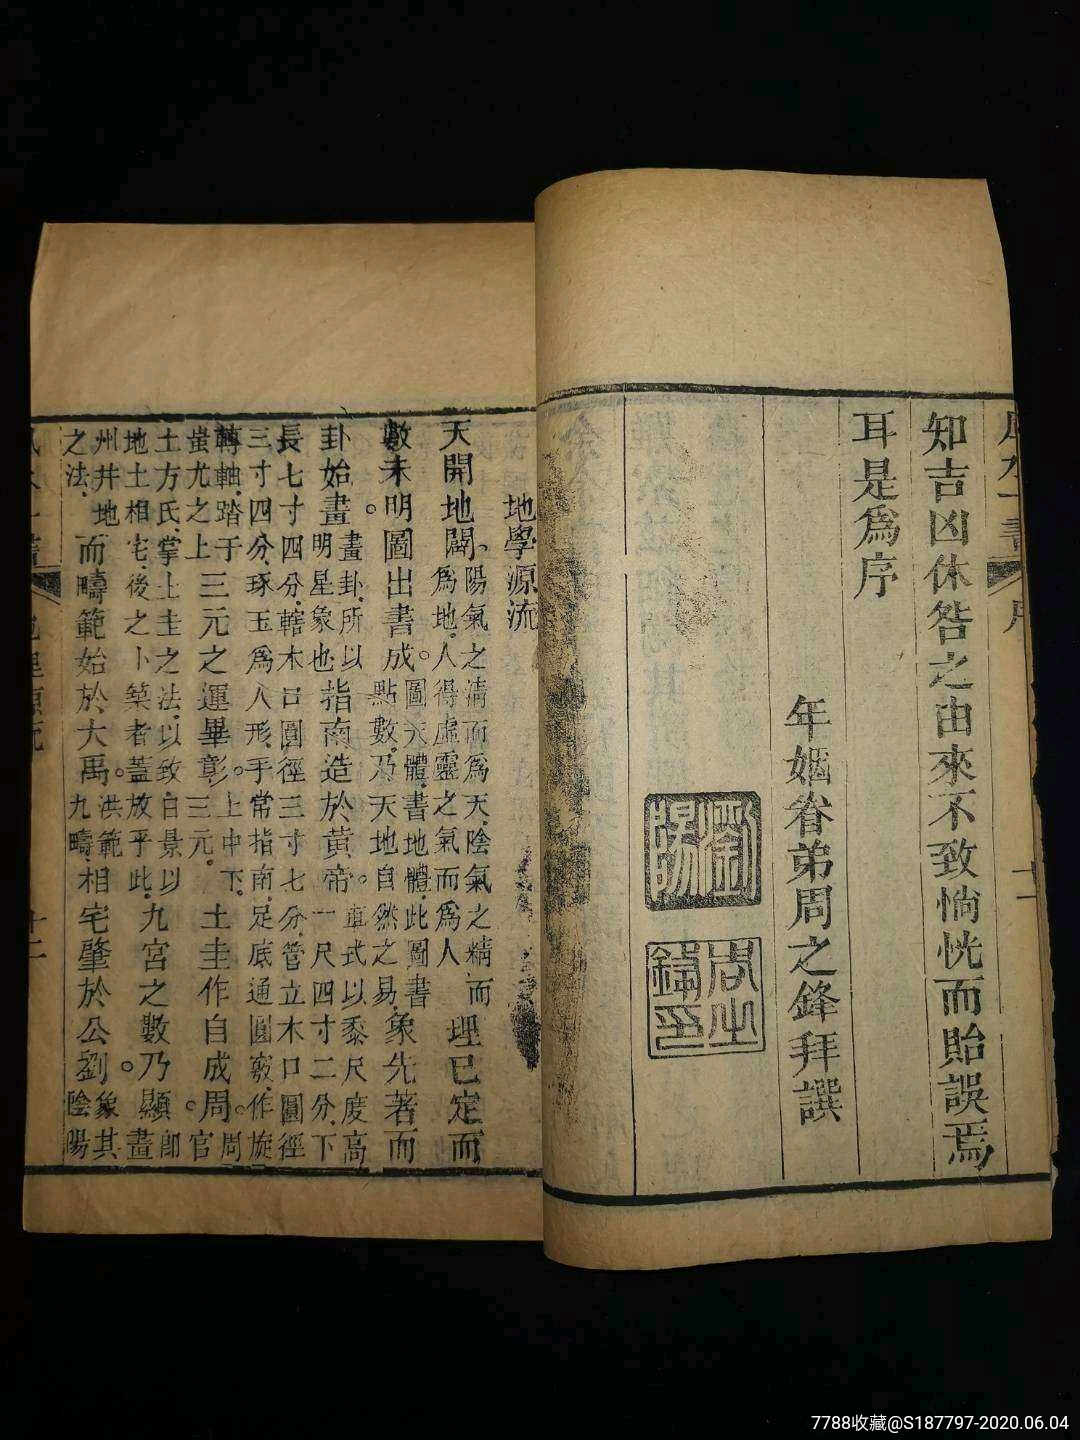 知吉凶休咎之由來不致惝恍而貽誤焉
耳是爲序
年姻眷弟周之鋒拜譔
地學源流
天開地闢。陽氣之清而爲天,陰氣之精而爲地,人得虛靈之氣而爲人理已定而
數未明。圖出書成。圖天體,書地體,此圖書點數,乃天地自然之易,象先著而
卦始畫畫卦,所以明星象也指南造於黃帝車式以黍尺度高一尺四寸二分,下
長七寸四分,轄木口圓徑三寸七分,管立木口圓徑
三寸四分,琢玉爲人形,手常指南,足底通圓竅,作旋
轉軸,踏于蚩尤之上三元之運畢彰。上中下三元。土圭作自成周。周官
土方氏掌土圭之法,以致日景以地土相宅,後之卜築者蓋放乎此,九宮之數乃顯即畫
州井地之法,而疇範始於大禹。洪範九疇,相宅肇於公劉。象其陰陽
7788收藏@S187797-2020.06.04